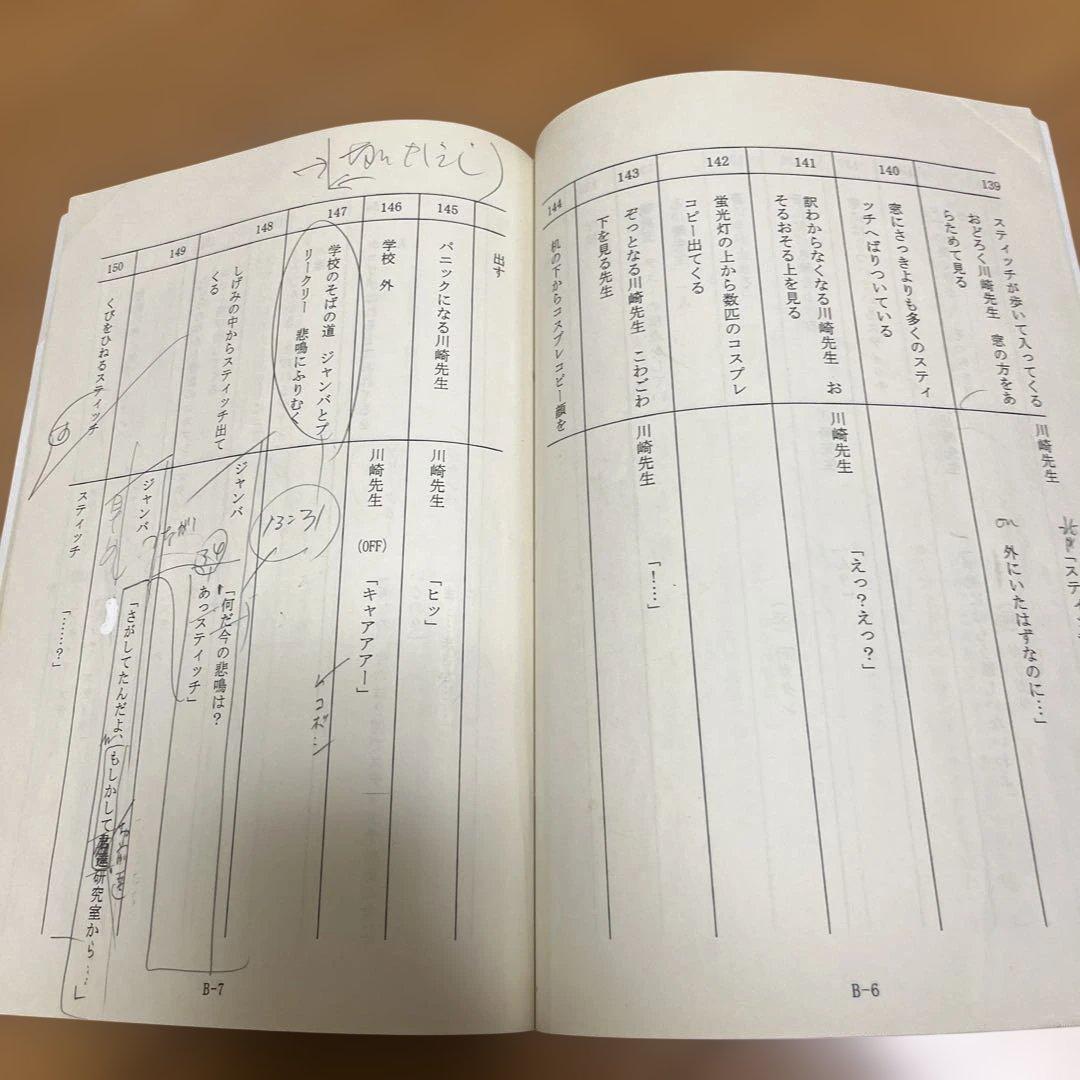 139
スティッチが歩いて入ってくる
おどろく川崎先生 窓の方をあ
らためて見る
川崎先生
「ステ
on 外にいたはずなのに…」
140
窓にさっきよりも多くのスティ
ッチへばりついている
141
訳わからなくなる川崎先生 お
そるおそる上を見る
川崎先生
「えっ？えっ？」
142
蛍光灯の上から数匹のコスプレ
コピー出てくる
143
ぞっとなる川崎先生 こわごわ
下を見る先生
川崎先生
「！…」
144
机の下からコスプレコピー顔を
B-6
出す
145
パニックになる川崎先生
川崎先生
「ヒッ」
146
学校 外
川崎先生 (OFF)
「キャアアアー」
147
学校のそばの道 ジャンバとプ
リークリー 悲鳴にふりむく
13:31
148
しげみの中からスティッチ出て
くる
ジャンバ
「何だ今の悲鳴は？
あっスティッチ」
149
ジャンバ
「さがしてたんだよ、もしかして
研究室から…」
150
くびをひねるスティッチ
スティッチ
「……？」
B-7